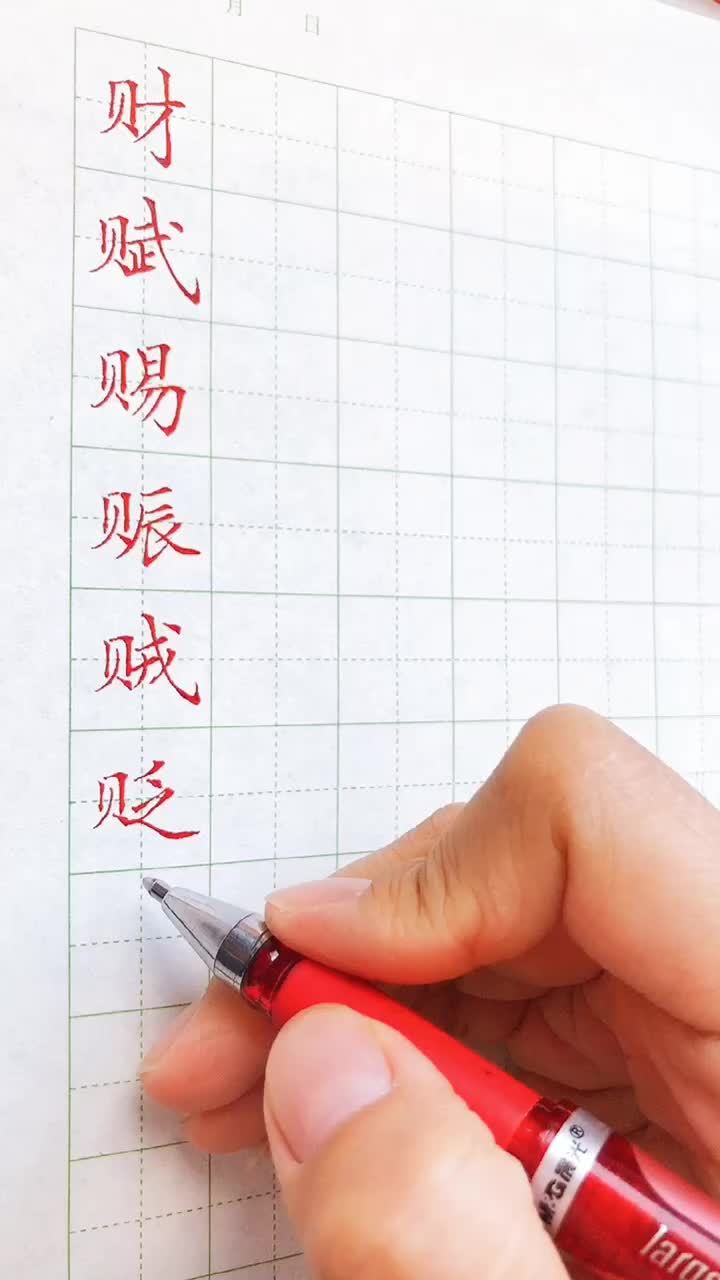 月 日
财
赋
赐
赈
贼
贬
晨光®
large